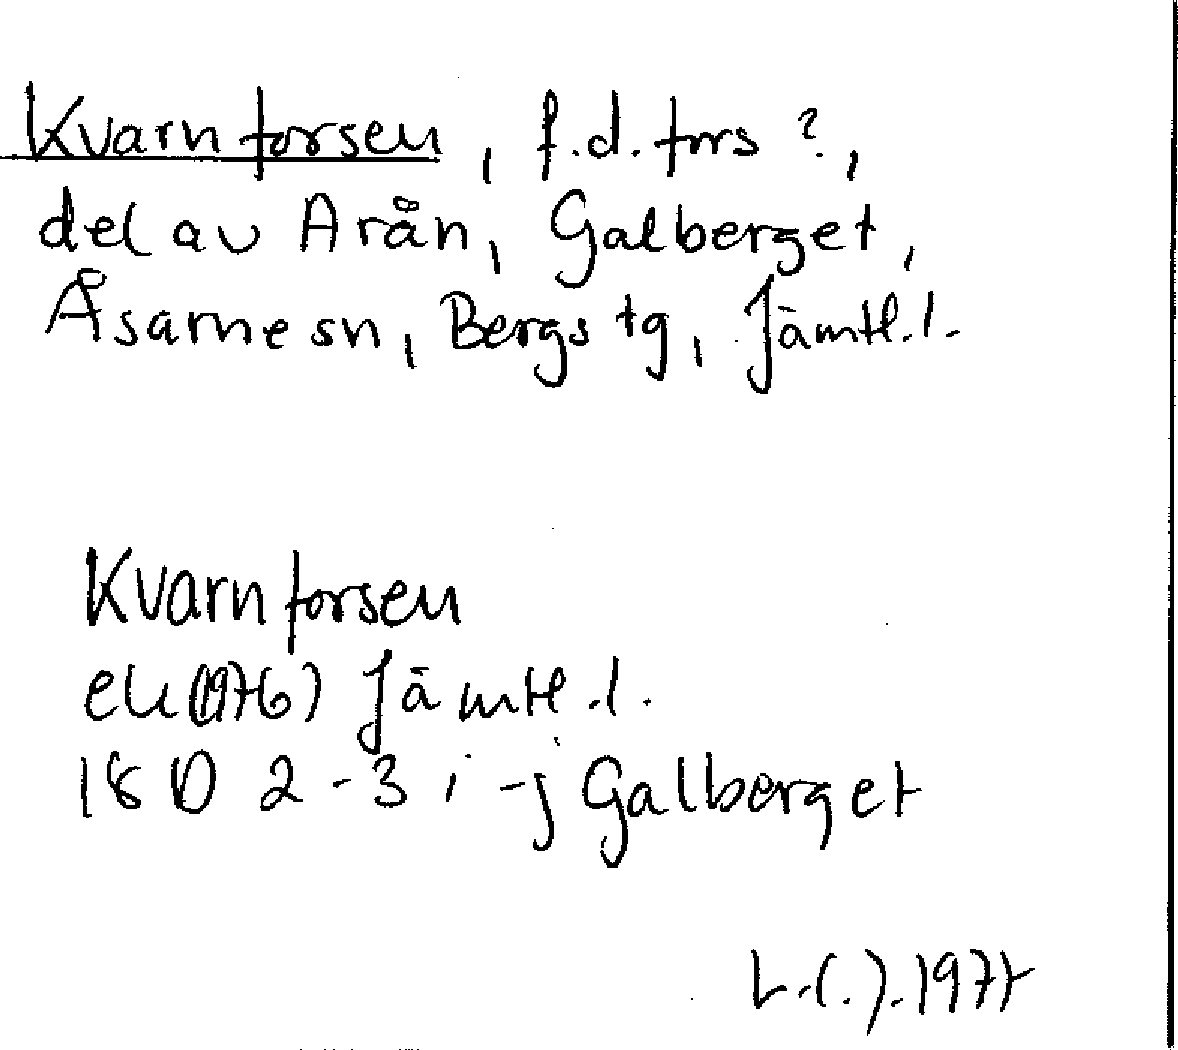 Kvarnforsen, f.d. fors?,
del av Arån, Galberget,
Åsarne sn, Bergs tg, Jämtl.l.
Kvarnforsen
ek (1976) Jämtl.l.
18 D 2-3 i-j Galberget
1977